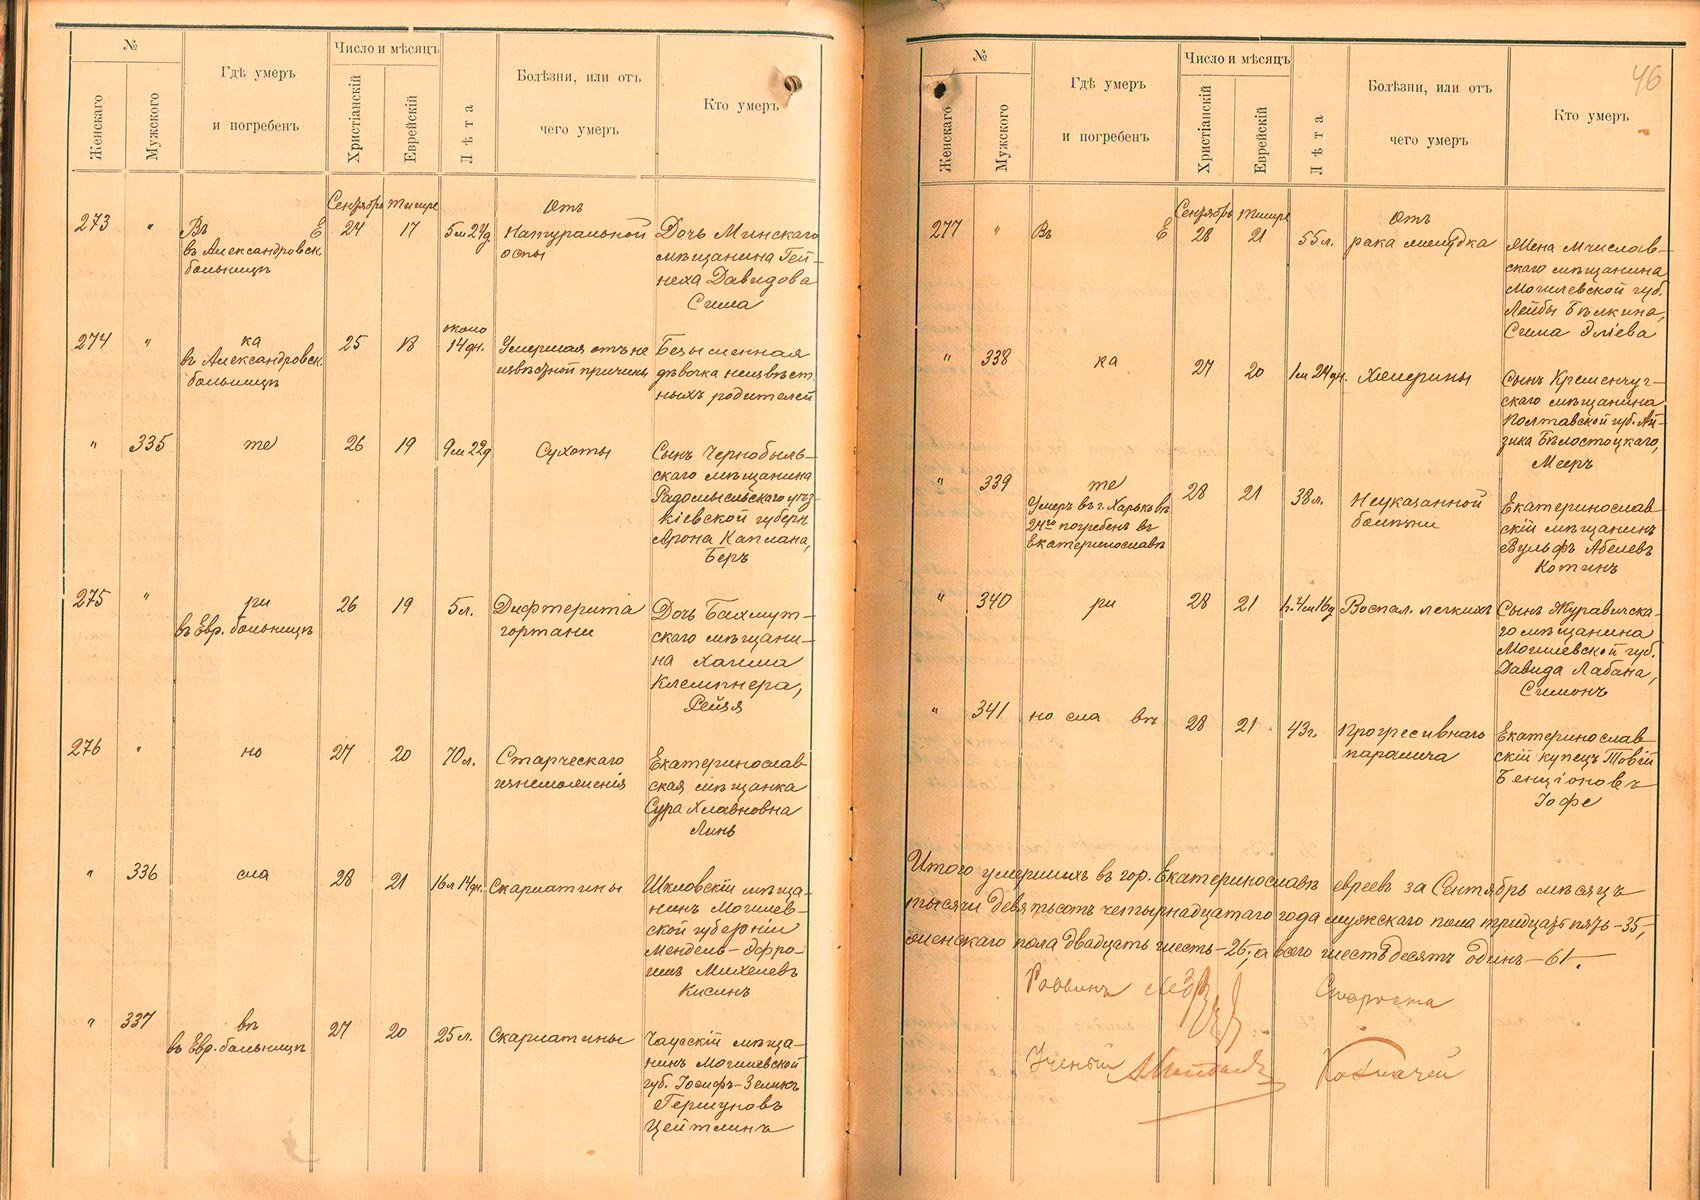 №
Женскаго
Мужского
Гдѣ умеръ
и погребенъ
Число и мѣсяцъ
Христіанскій
Еврейскій
Лѣта
Болѣзни, или отъ
чего умеръ
Кто умеръ
Сентябрь Тишре
Отъ
273 " Въ Е 24 17 5м 24д.
въ Александровск.
больницѣ
Натуральной
оспы
Дочь Минскаго
мѣщанина Гей-
неха Давидова
Сима
274 " ка 25 18 около
14 дн.
въ Александровск.
больницѣ
Умершая отъ не
извѣстной причины
Безыменная
дѣвочка неизвѣст.
ныхъ родителей
" 335 те 26 19 9м 22д Сухоты
Сынъ Чернобыль-
скаго мѣщанина
Радомысльскаго уѣз
Кіевской губерн
Арона Каплана,
Беръ
275 " ри 26 19 5 л.
въ Евр. больницѣ
Дифтерита
гортани
Дочь Бахмут-
скаго мѣщани-
на Хаима
Клемпнера,
Рейзя
276 " но 27 20 70 л.
Старческаго
изнеможенія
Екатеринослав
ская мѣщанка
Сура Хлавновна
Линь
" 336 сла 28 21 16л 14дн. Скарлатины
Шкловскій мѣща-
нинъ Могилев-
ской губерніи
Мендель-Эфро-
имъ Михелевъ
Кисинъ
" 337 въ 27 20 25 л. Скарлатины
въ Евр. больницѣ
Чаусскій мѣща-
нинъ Могилевской
губ. Іосифъ-Зеликъ
Гершуновъ
Цейтлинъ
46
№
Женскаго
Мужского
Гдѣ умеръ
и погребенъ
Число и мѣсяцъ
Христіанскій
Еврейскій
Лѣта
Болѣзни, или отъ
чего умеръ
Кто умеръ
Сентябрь Тишре
Отъ
277 " Въ Е 28 21 55 л. рака желудка
Жена Мчислав-
скаго мѣщанина
Могилевской губ.
Лейбы Бѣлкина,
Сима Эліева
" 338 ка 27 20 1м 24 дн. Холерины
Сынъ Кременчуг-
скаго мѣщанина
Полтавской губ. Ай-
зика Бѣлостоцкаго,
Мееръ
" 339 те 28 21 38 л.
Умеръ въ г. Харьковѣ
24го погребенъ въ
Екатеринославѣ
Неуказанной
болѣзни
Екатеринослав
скій мѣщанинъ
Вульфъ Абелевъ
Котинъ
" 340 ри 28 21 4м 16д Воспал. легкихъ
Сынъ Журавичска-
го мѣщанина
Могилевской губ.
Давида Лабана,
Симонъ
" 341 но сла въ 28 21 43 г.
Прогресивнаго
паралича
Екатеринослав
скій купецъ Товій
Бенціоновъ
Іофе
Итого умершихъ въ гор. Екатеринославѣ евреевъ за Сентябрь мѣсяцъ
тысячи девятьсотъ четырнадцатаго года мужскаго пола тридцать пять-35,
женскаго пола двадцать шесть-26, а всего шестьдесятъ одинъ-61.
Раввинъ
Староста
Ученый
Казначей